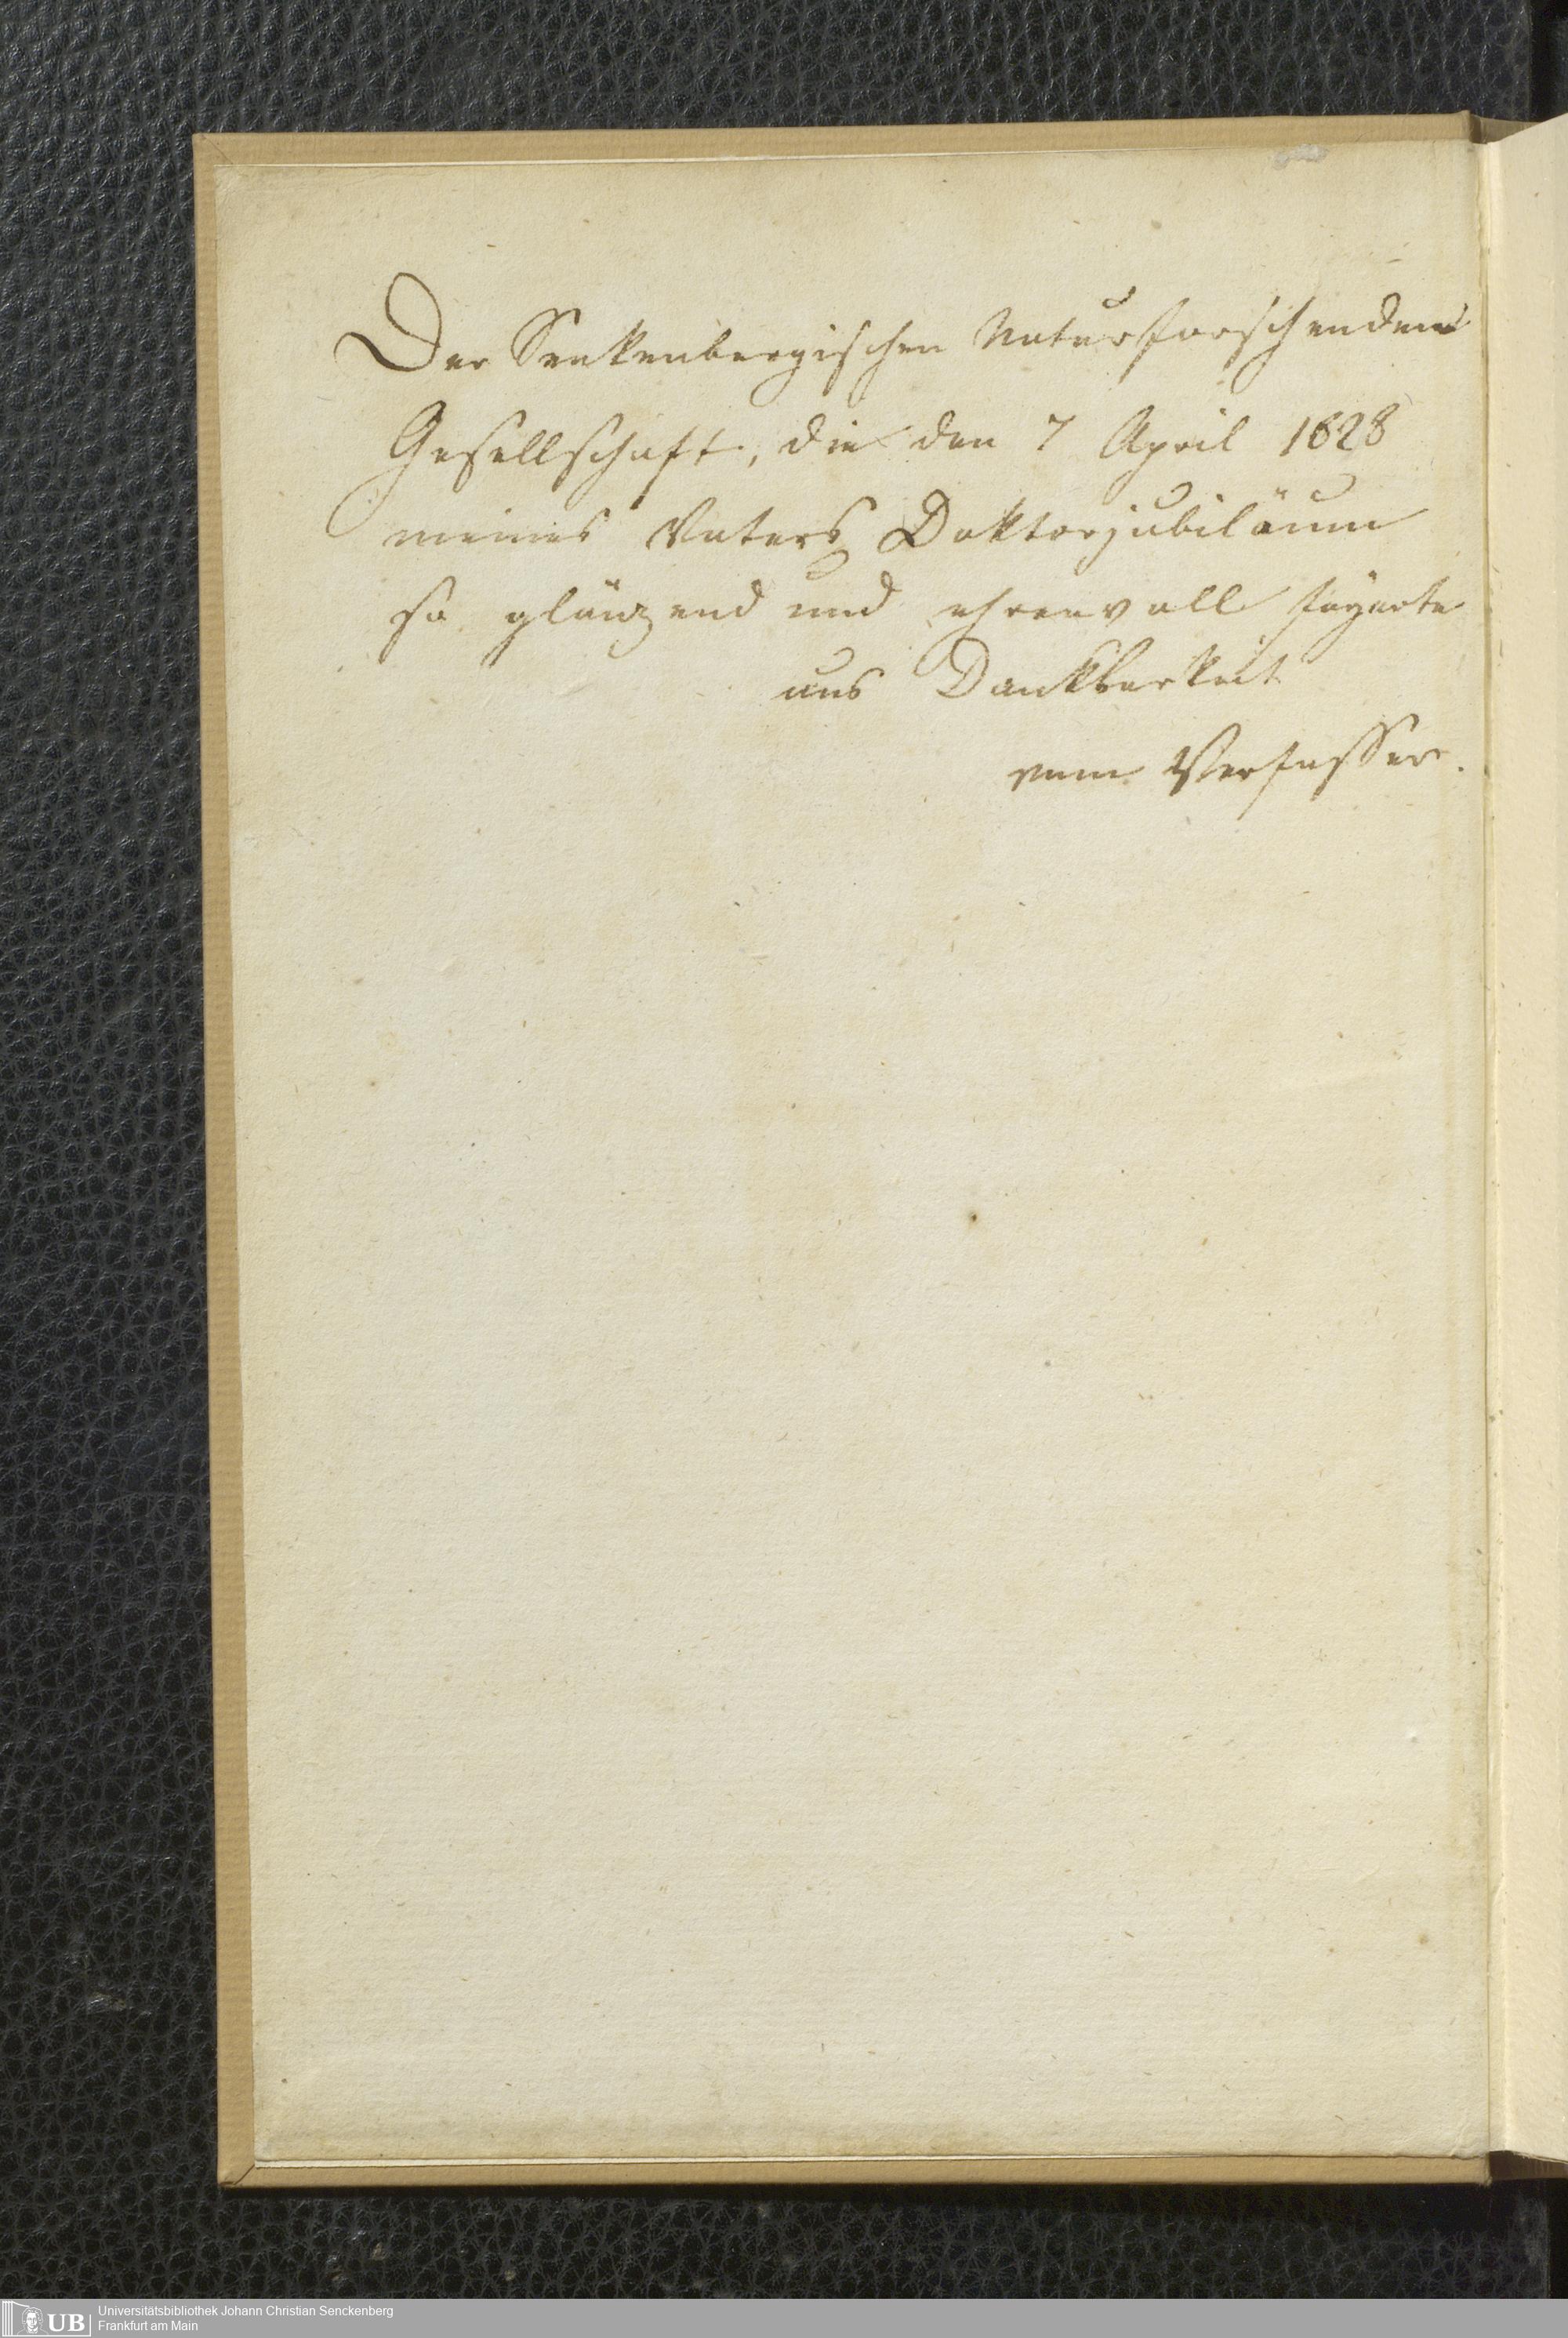 Der Senkenbergischen Naturforschenden
Gesellschaft, die den 7 April 1828
meines Vaters Doktorjubiläum
so glänzend und ehrenvoll feyerte
aus Dankbarkeit
vom Verfasser.
UB
Universitätsbibliothek Johann Christian Senckenberg
Frankfurt am Main